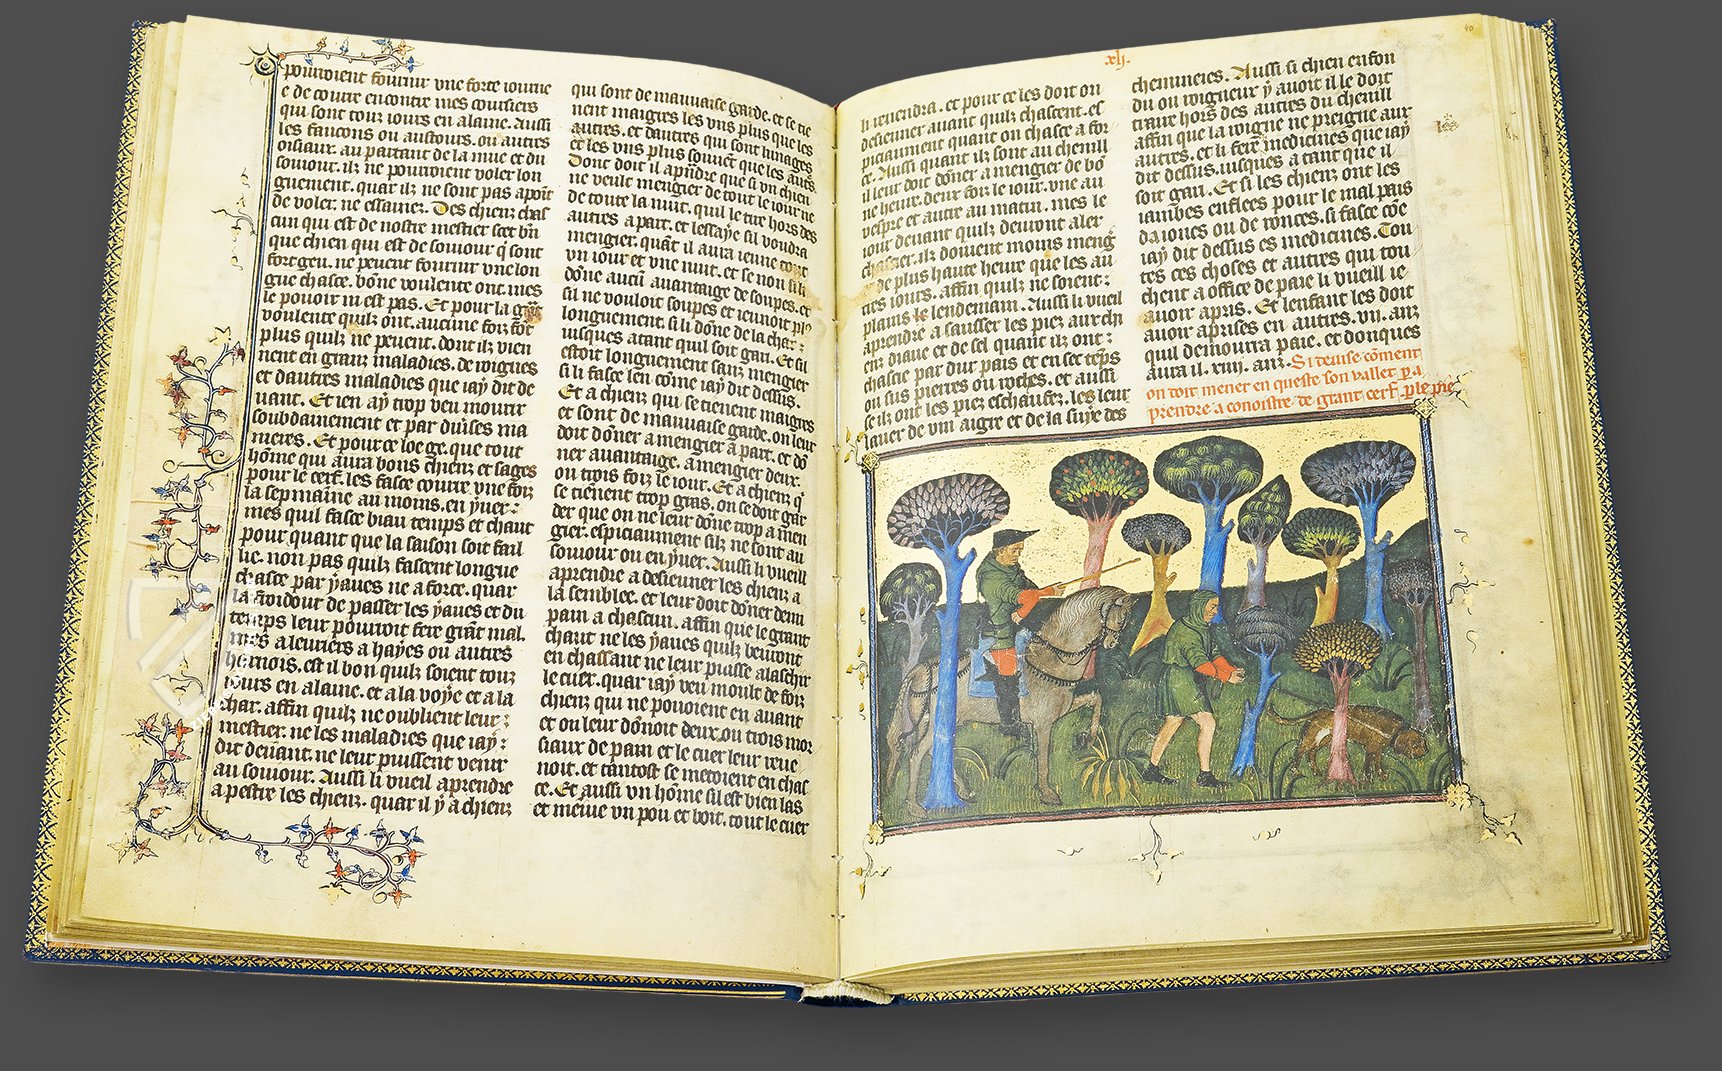 pourroient fournir vne forte iournee
e de courre encontre mes coursiers
qui sont touz iours en alaine. Aussi
les faucons ou austours. ou autres
oisiaux. au partant de la mue et du
seiour. ilz ne pourroient voler lon
guement. quar ilz ne sont pas apoīt
de voler. ne essaiuez. Des chienz chas
cun qui est de nostre mestier scet bn̄
que chien qui est de seiour q̄ sont
fort gēu. ne peuent fournir vne lon
gue chasce. bōne voulente ont. mes
le pouoir ni est pas. Et pour la
voulente quilz ont. aucune foiz fōt
plus quilz ne peuent. dont ilz vien
nent en granz maladies. de roignes
et dautres maladies que iay dit de
uant. Et ien ay trop veu mourir
soubdainement et par diūses ma
nieres. Et pour ce loe ge. que tout
hōme qui aura bons chienz et sages
pour le cerf. les fasce courre vne foiz
la sepmaine au moins. en yuer.
mes quil fasce biau temps et chaut
pour quant que la saison soit fail
lie. non pas quilz fascent longue
chasce par yaues ne a force. quar
la froidour de passer les yaues et du
temps leur pourroit fere grāt mal.
mes a leuriers a hayes ou autres
harnois. est il bon quilz soient touz
iours en alaine. et a la voye et a la
char. affin quilz ne oublient leur
mestier. ne les maladies que iay
dit deuant. ne leur puissent venir
au seiour. Aussi li vueil aprendre
a pestre les chienz. quar il y a chienz
qui sont de mauuaise garde. et se tie
nent maigres les vns plus que les
autres. et dautres qui sont lunages
et les vns plus souuēt que les autˢ.
Dont doit il apn̄dre que si vn chien
ne veult mengier de tout le iour ne
de toute la nuit. quil le tire hors des
autres a part. et lessaye sil voudra
mengier. quāt il aura ieune tout
vn iour et vne nuit. et se non si li
dōne aucū auantaige de soupes. et
sil ne vouloit soupes et ieunoit plꝰ
longuement. si li dōne de la char
iusques atant quil soit gari. Et sil
estoit longuement sanz mengier
si li fasce len cōme iay dit dessus.
Et a chienz qui se tienent maigres
et sont de mauuaise garde. on leur
doit dōner a mengier a part. et dō
ner auantaige. a mengier deux.
ou trois foiz le iour. Et a chienz q̄
se tienent trop gras. on se doit gar
der que on ne leur dōne trop a mēn
gier. espiciaument silz ne sont au
seiour ou en yuer. Aussi li vueil
aprendre a desieuner les chienz a
la semblee. et leur doit dōner demi
pain a chascun. affin que le grant
chaut ne les yaues quilz beuuront
en chassant ne leur puisse alaschir
le cuer. quar iay veu moult de foiz
chienz qui ne pouoient en auant
et on leur dōnoit deux. ou trois mor
siaux de pain et le cuer leur reue
noit. et tantost se metoient en chas
ce. Et aussi vn hōme sil est bien las
et mēiue vn pou et boit. tout le cuer
xlj.
li reuendra. et pour ce les doit on
desieuner auant quilz chascent. es
piciaument quant on chasce a for
ce. Aussi quant ilz sont au chenill
il leur doit dōner a mengier de bō
ne heure. deux foiz le iour. vne au
vespre et autre au matin. mes le
iour deuant quilz deuront aler
chascier. ilz doiuent moins meng
de plus haute heure que les au
tres iours. affin quilz ne soient
plains le lendemain. Aussi li vueil
aprendre a sausser les piez aux chi
enz diaue et de sel quant ilz ont
chascie par dur pais et en sec tēps
ou sus pierres ou roches. et aussi
se ilz ont les piez eschaufez. les leur
lauer de vin aigre et de la suye des
cheminees. Aussi si chien en son
du ou roigneux y auoit il le doit
traire hors des autres du chenill
affin que la roigne ne preigne aux
autres. et li fere medicines que iay
dit dessus. iusques a tant que il
soit gari. Et si les chienz ont les
iambes enflees pour le mal pais
daiones ou de ronces. si fasce cōe
iay dit dessus es medicines. Tou
tes ces choses et autres qui tou
chent a office de paie li vueill ie
auoir apris. Et lenfant les doit
auoir aprises en autres. vii. anz
quil demourra paie. et donques
aura il. xiiii. anz. Si deuise cōment
on doit mener en queste son vallet pͬ a
prendre a conoistre de grant cerf. p̱ le pie
40